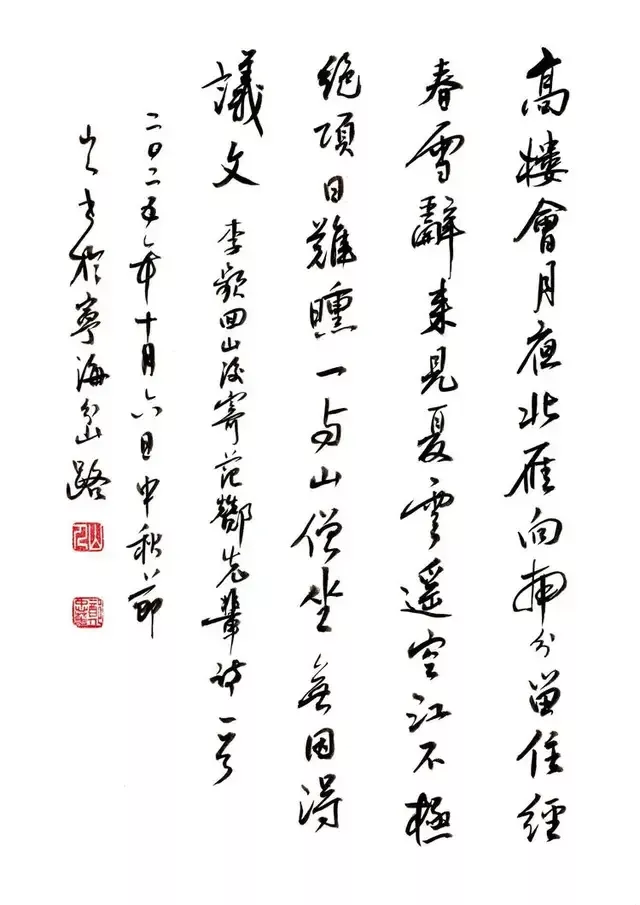 高樓會月夜北雁向南分留住經
春雪辭來見夏雲遥空江不極
絕頂日難曛一与山僧坐無因得
議文 李頻回山後寄范酇先輩詩一首
二〇二五年十月六日中秋節
山人書於寧海岔路